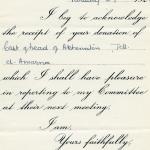 I beg to acknowledge
the receipt of your donation of
Cast of head of Akhenaten Tell
el-Amarna
which I shall have pleasure
in reporting to my Committee
at their next meeting.
I am,
Yours faithfully,